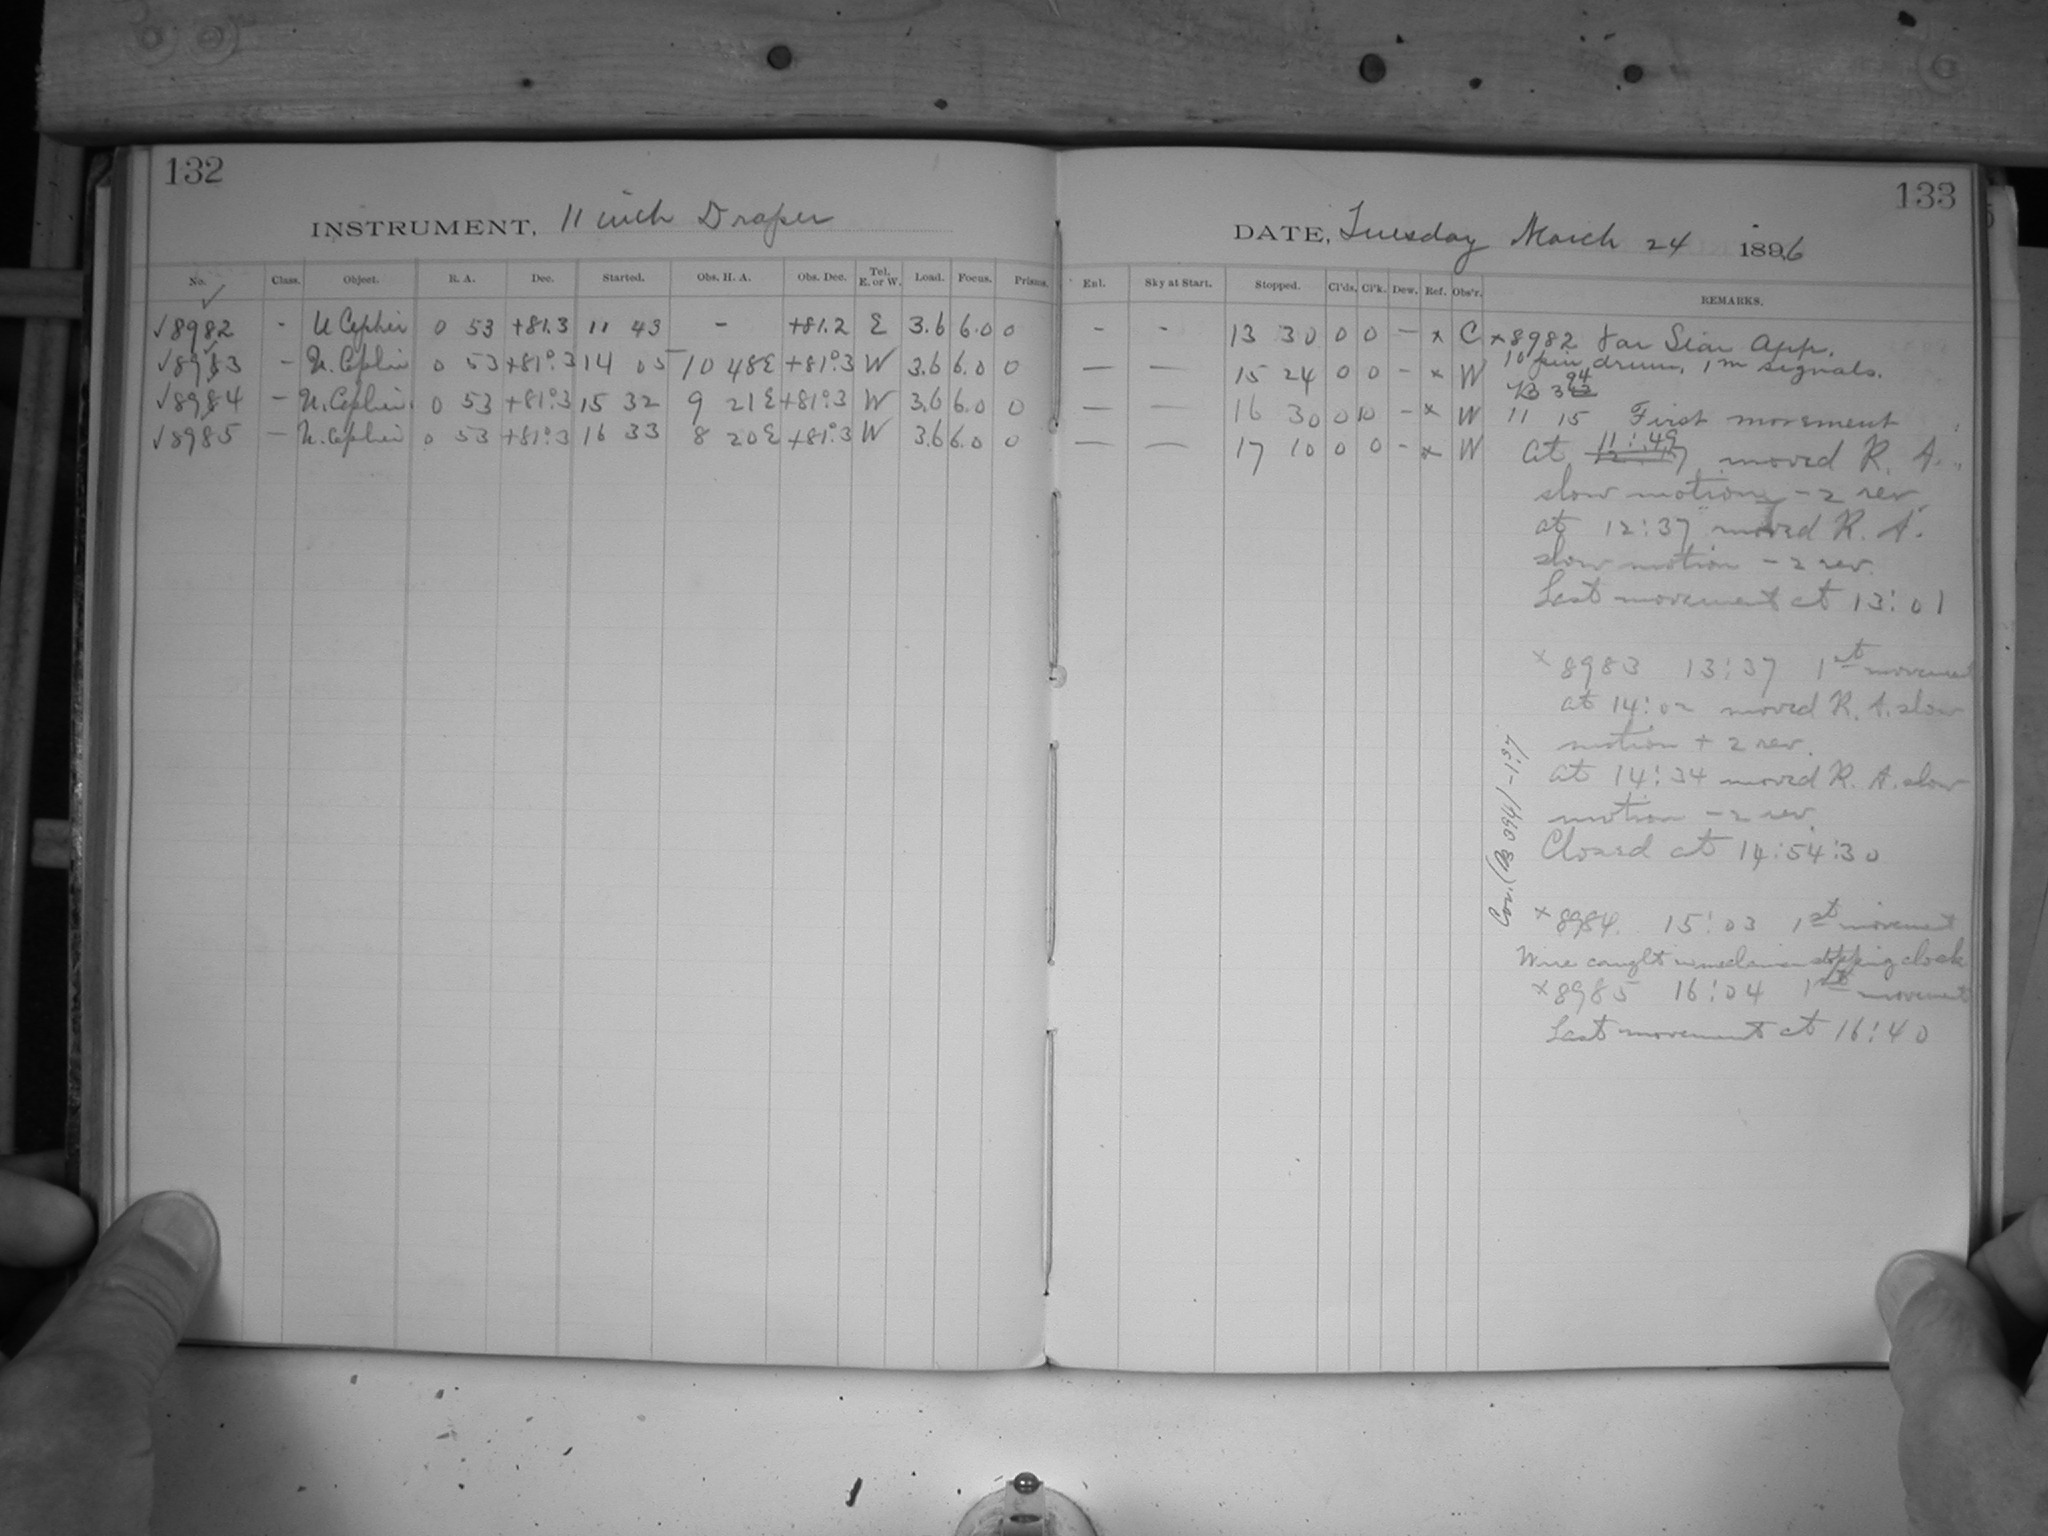 132
INSTRUMENT, 11 inch Draper
No. Class. Object. R. A. Dec. Started. Obs. H. A. Obs. Dec. Tel. E. or W. Load. Focus. Prisms.
√8982 - U Cephei 0 53 +81.3 11 43 - +81.2 E 3.6 6.0 0
√8983 - U. Cephei 0 53 +81°.3 14 05 10 48E +81°.3 W 3.6 6.0 0
√8984 - U. Cephei 0 53 +81°.3 15 32 9 21E +81°.3 W 3.6 6.0 0
√8985 - U. Cephei 0 53 +81°.3 16 33 8 20E +81°.3 W 3.6 6.0 0
133
DATE, Tuesday March 24 1896
Enl. Sky at Start. Stopped. Cl'ds. Cl'k. Dew. Ref. Obs'r. REMARKS.
- - 13 30 0 0 - x C x8982 Var Star App.
10 pin drum, 1m signals.
— — 15 24 0 0 - x W B 394
— — 16 30 0 10 - x W 11 15 First movement
— — 17 10 0 0 - x W At 11:49 moved R. A.
slow motion - 2 rev.
at 12:37 moved R. A.
slow motion - 2 rev.
Last movement at 13:01
x 8983 13:37 1st movement
at 14:02 moved R. A. slow
motion + 2 rev.
at 14:34 moved R. A. slow
motion - 2 rev.
Closed at 14:54:30
x 8984. 15:03 1st movement
Wire caught stopping clock
x 8985 16:04 1st movement
Last movement at 16:40
Cor. (B 394) -1:37